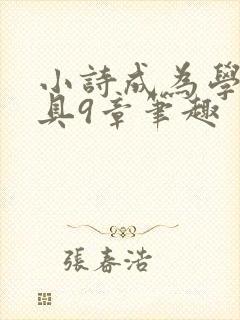 小詩成為學
具9章筆趣
張春浩